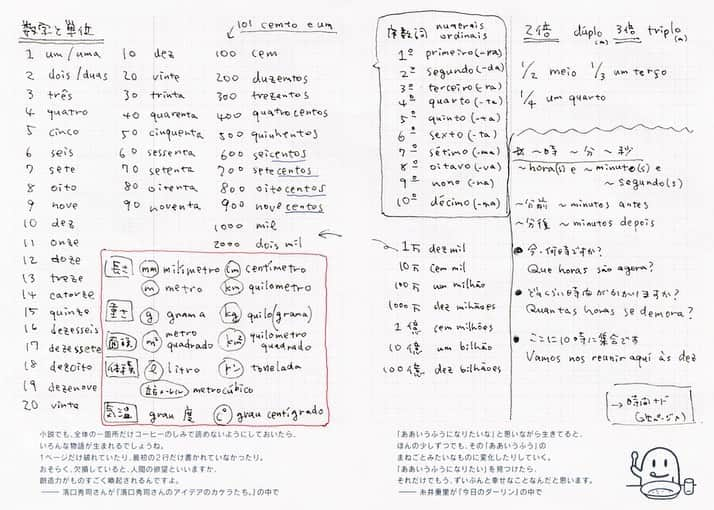 数字と単位
101 cento e um
1 um/uma
2 dois/duas
3 três
4 quatro
5 cinco
6 seis
7 sete
8 oito
9 nove
10 dez
11 onze
12 doze
13 treze
14 catorze
15 quinze
16 dezesseis
17 dezessete
18 dezoito
19 dezenove
20 vinte
10 dez
20 vinte
30 trinta
40 quarenta
50 cinquenta
60 sessenta
70 setenta
80 oitenta
90 noventa
100 cem
200 duzentos
300 trezentos
400 quatrocentos
500 quinhentos
600 seicentos
700 setecentos
800 oitocentos
900 novecentos
1000 mil
2000 dois mil
長さ mm milímetro cm centímetro
m metro km quilometro
重さ g grama kg quilo(grama)
面積 m² metro quadrado km² quilometro quadrado
体積 l litro トン tonelada
立方メートル metro cúbico
気温 grau 度 ℃ grau centígrado
小説でも、全体の一箇所だけコーヒーのしみで読めないようにしておいたら、
いろんな物語が生まれるでしょうね。
1ページだけ破れていたり、最初の2行だけ書かれていなかったり。
おそらく、欠損していると、人間の欲望といいますか、
創造力がものすごく喚起されるんですよ。
—— 濱口秀司さんが『濱口秀司さんのアイデアのカケラたち。』の中で
序数詞 numerais ordinais
1º primeiro(-ra)
2º segundo(-da)
3º terceiro(-ra)
4º quarto(-ta)
5º quinto(-ta)
6º sexto(-ta)
7º sétimo(-ma)
8º oitavo(-va)
9º nono(-na)
10º décimo(-ma)
1万 dez mil
10万 cem mil
100万 um milhão
1000万 dez milhões
1億 cem milhões
10億 um bilhão
100億 dez bilhões
2倍 dúplo(a) 3倍 triplo(a)
1/2 meio 1/3 um terço
1/4 um quarto
～時 ～分 ～秒
～hora(s) e ～minuto(s) e
～segundo(s)
～分前 ～minutos antes
～分後 ～minutos depois
● 今、何時ですか?
Que horas são agora?
● どれくらい時間がかかりますか?
Quantas horas se demora?
● ここに10時に集合です
Vamos nos reunir aqui às dez
→時間
「ああいうふうになりたいな」と思いながら生きてると、
ほんの少しずつでも、その「ああいうふう」の
まねごとみたいなものに変化したりしていく。
「ああいうふうになりたい」を見つけたら、
それだけでもう、ずいぶんと幸せなことなんだと思います。
—— 糸井重里が「今日のダーリン」の中で